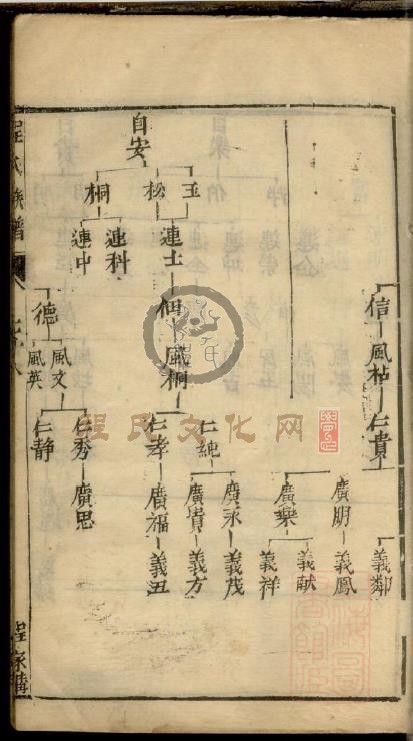 信
風祜
仁貴
義鄰
廣明
義鳳
廣樂
義献
義祥
自安
玉
松
桐
連士
連科
連中
佃
風桐
仁純
仁孝
廣永
廣貴
廣福
義茂
義方
義丑
德
風文
風英
仁秀
仁静
廣思
程氏族譜
程家
程氏文化网